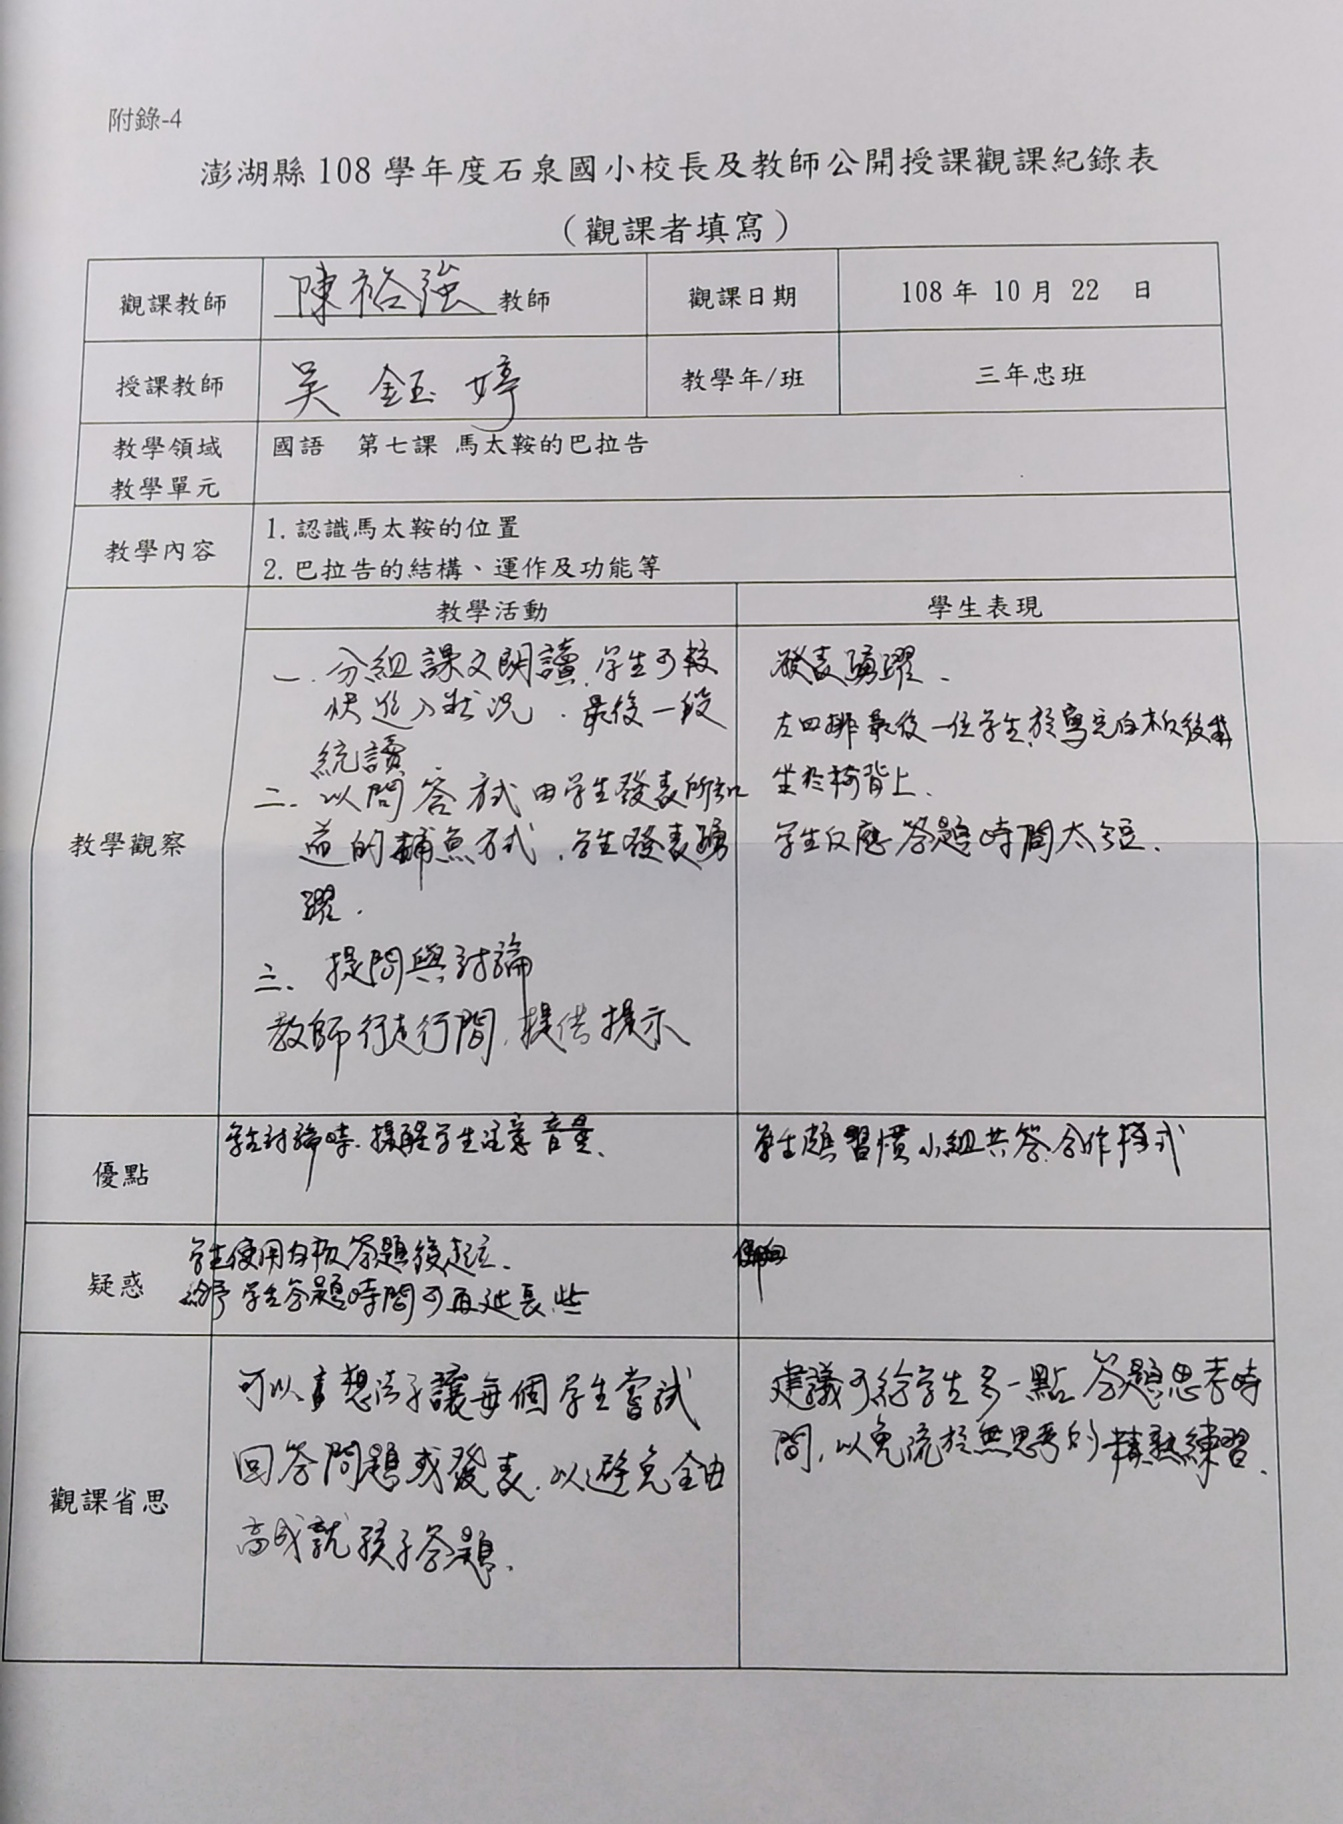 附錄-4
澎湖縣 108 學年度石泉國小校長及教師公開授課觀課紀錄表
（觀課者填寫）
觀課教師 陳裕強 教師 觀課日期 108 年 10 月 22 日
授課教師 吳鈺婷 教學年/班 三年忠班
教學領域
教學單元
國語 第七課 馬太鞍的巴拉告
教學內容
1. 認識馬太鞍的位置
2. 巴拉告的結構、運作及功能等
教學觀察
教學活動
一. 分組課文朗讀. 學生可較
快進入狀況. 最後一段
統讀
二. 以問答方式由學生發表所知
道的捕魚方式. 學生發表踴
躍.
三. 提問與討論
教師行走行間, 提供提示
學生表現
發表踴躍.
左四排最後一位學生, 於寫完白板後
坐於椅背上.
學生反應答題時間太短.
優點
學生討論時. 提醒學生注意音量.
學生頗習慣小組共答合作模式
疑惑
學生使用白板答題後起立.
給予學生答題時間可再延長些
觀課省思
可以想法子讓每個學生嘗試
回答問題或發表. 以避免全由
高成就孩子答題.
建議可給學生多一點答題思考時
間, 以免流於無思考的精熟練習.